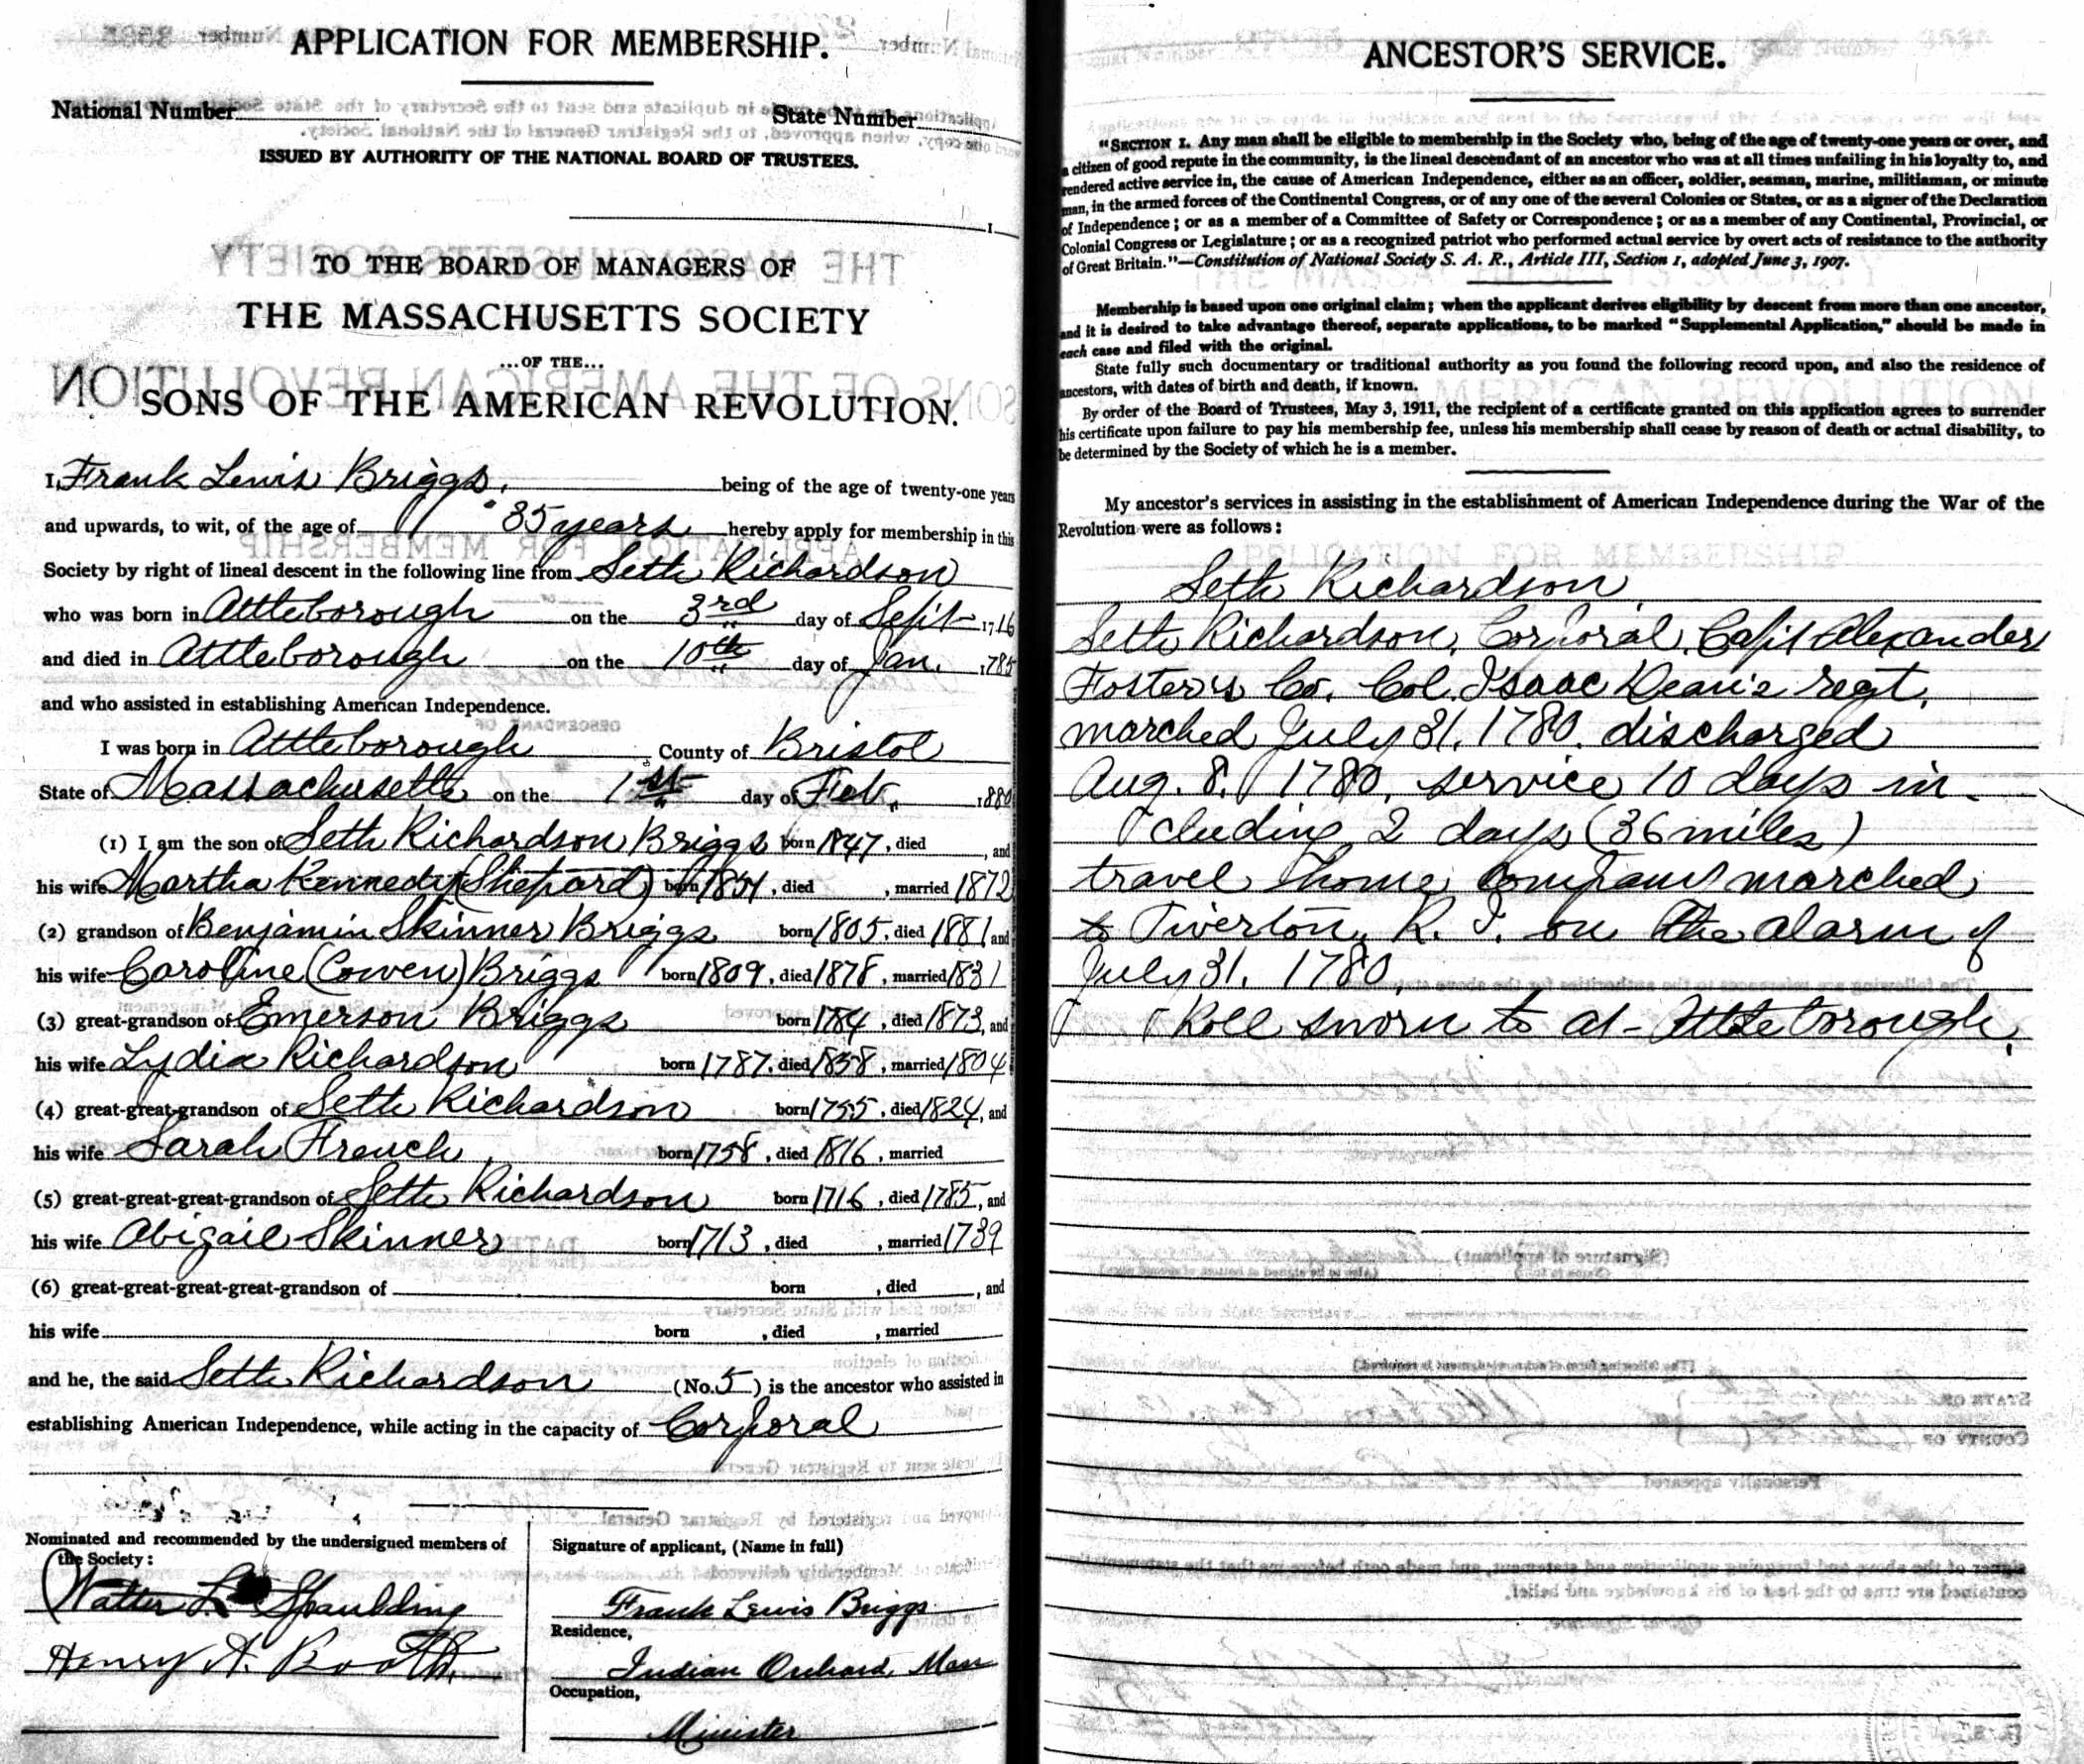 APPLICATION FOR MEMBERSHIP.
National Number State Number
ISSUED BY AUTHORITY OF THE NATIONAL BOARD OF TRUSTEES.
1
TO THE BOARD OF MANAGERS OF
THE MASSACHUSETTS SOCIETY
...OF THE...
SONS OF THE AMERICAN REVOLUTION.
I, Frank Lewis Briggs, being of the age of twenty-one years
and upwards, to wit, of the age of 35 years hereby apply for membership in this
Society by right of lineal descent in the following line from Seth Richardson
who was born in Attleborough on the 3rd day of Sept 1716
and died in Attleborough on the 10th day of Jan. 1785
and who assisted in establishing American Independence.
I was born in Attleborough, County of Bristol
State of Massachusetts on the 1st day of Feb. 1880
(1) I am the son of Seth Richardson Briggs born 1847, died , and
his wife Martha Kennedy (Shepard) born 1851, died , married 1872
(2) grandson of Benjamin Skinner Briggs born 1805, died 1881 and
his wife Caroline (Cowen) Briggs born 1809, died 1878, married 1831
(3) great-grandson of Emerson Briggs born 1784, died 1873, and
his wife Lydia Richardson born 1787, died 1858, married 1804
(4) great-great-grandson of Seth Richardson born 1755, died 1824, and
his wife Sarah French, born 1758, died 1816, married
(5) great-great-great-grandson of Seth Richardson born 1716, died 1785, and
his wife Abigail Skinner born 1713, died , married 1739
(6) great-great-great-great-grandson of born , died , and
his wife born , died , married
and he, the said Seth Richardson (No. 5) is the ancestor who assisted in
establishing American Independence, while acting in the capacity of Corporal
Nominated and recommended by the undersigned members of
the Society:
Walter L. Spaulding
Henry A. Booth
Signature of applicant, (Name in full)
Frank Lewis Briggs
Residence,
Indian Orchard, Mass
Occupation,
Minister
ANCESTOR'S SERVICE.
"SECTION 1. Any man shall be eligible to membership in the Society who, being of the age of twenty-one years or over, and
a citizen of good repute in the community, is the lineal descendant of an ancestor who was at all times unfailing in his loyalty to, and
rendered active service in, the cause of American Independence, either as an officer, soldier, seaman, marine, militiaman, or minute
man, in the armed forces of the Continental Congress, or of any one of the several Colonies or States, or as a signer of the Declaration
of Independence; or as a member of a Committee of Safety or Correspondence; or as a member of any Continental, Provincial, or
Colonial Congress or Legislature; or as a recognized patriot who performed actual service by overt acts of resistance to the authority
of Great Britain."—Constitution of National Society S. A. R., Article III, Section 1, adopted June 3, 1907.
Membership is based upon one original claim; when the applicant derives eligibility by descent from more than one ancestor,
and it is desired to take advantage thereof, separate applications, to be marked "Supplemental Application," should be made in
each case and filed with the original.
State fully such documentary or traditional authority as you found the following record upon, and also the residence of
ancestors, with dates of birth and death, if known.
By order of the Board of Trustees, May 3, 1911, the recipient of a certificate granted on this application agrees to surrender
his certificate upon failure to pay his membership fee, unless his membership shall cease by reason of death or actual disability, to
be determined by the Society of which he is a member.
My ancestor's services in assisting in the establishment of American Independence during the War of the
Revolution were as follows:
Seth Richardson
Seth Richardson, Corporal, Capt Alexander
Foster's Co. Col. Isaac Dean's regt.
marched July 31, 1780. discharged
Aug. 8, 1780, service 10 days in-
cluding 2 days (36 miles)
travel home company marched
to Tiverton, R. I. on the alarm of
July 31, 1780.
Roll sworn to at Attleborough.